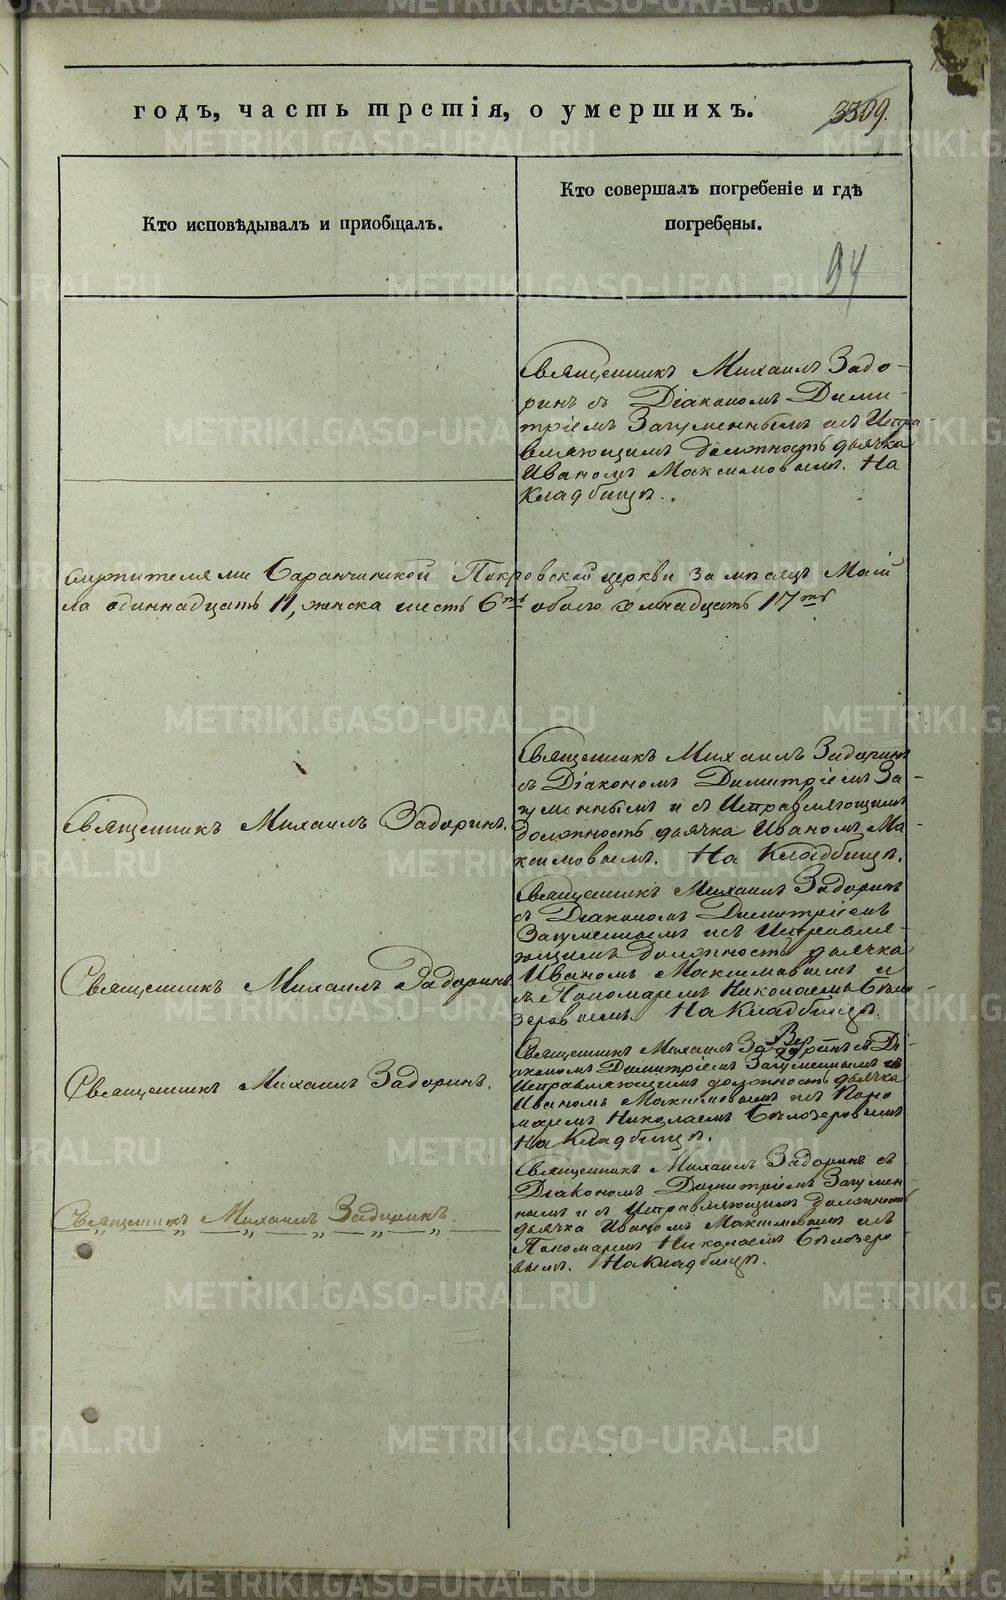 годъ, часть третія, о умершихъ.
3309.
Кто исповѣдывалъ и приобщалъ.
Кто совершалъ погребеніе и гдѣ
погребены.
94
Священникъ Михаилъ Задо-
ринъ съ Діакономъ Дими-
тріемъ Загуменнымъ и съ Испра
вляющимъ должность дьячка
Иваномъ Максимовымъ. На
Кладбищѣ.
служителями Баранчинской Покровской церкви за мѣсяцъ Май
ла одиннадцать 11, женска шесть 6ть обоего семнадцать 17ть
Священникъ Михаилъ Задоринъ.
Священникъ Михаилъ Задоринъ
съ Діакономъ Димитріемъ За-
гуменнымъ и съ Исправляющимъ
должность дьячка Иваномъ Ма
ксимовымъ. На Кладбищѣ.
Священникъ Михаилъ Задоринъ
Священникъ Михаилъ Задоринъ
съ Діакономъ Димитріемъ
Загуменнымъ и съ Исправля-
ющимъ должность дьячка
Иваномъ Максимовымъ и
съ Пономаремъ Николаемъ Бѣло-
зеровымъ. На Кладбищѣ.
Священникъ Михаилъ Задоринъ.
Священникъ Михаилъ Задоринъ съ Ді
акономъ Димитріемъ Загуменнымъ съ
Исправляющимъ должность дьячка
Иваномъ Максимовымъ и съ Поно
маремъ Николаемъ Бѣлозеровымъ
На Кладбищѣ.
Священникъ Михаилъ Задоринъ.
Священникъ Михаилъ Задоринъ съ
Діакономъ Димитріемъ Загумен-
нымъ и съ Исправляющимъ должность
дьячка Иваномъ Максимовымъ и съ
Пономаремъ Николаемъ Бѣлозеро
вымъ. На Кладбищѣ.
METRIKI.GASO-URAL.RU